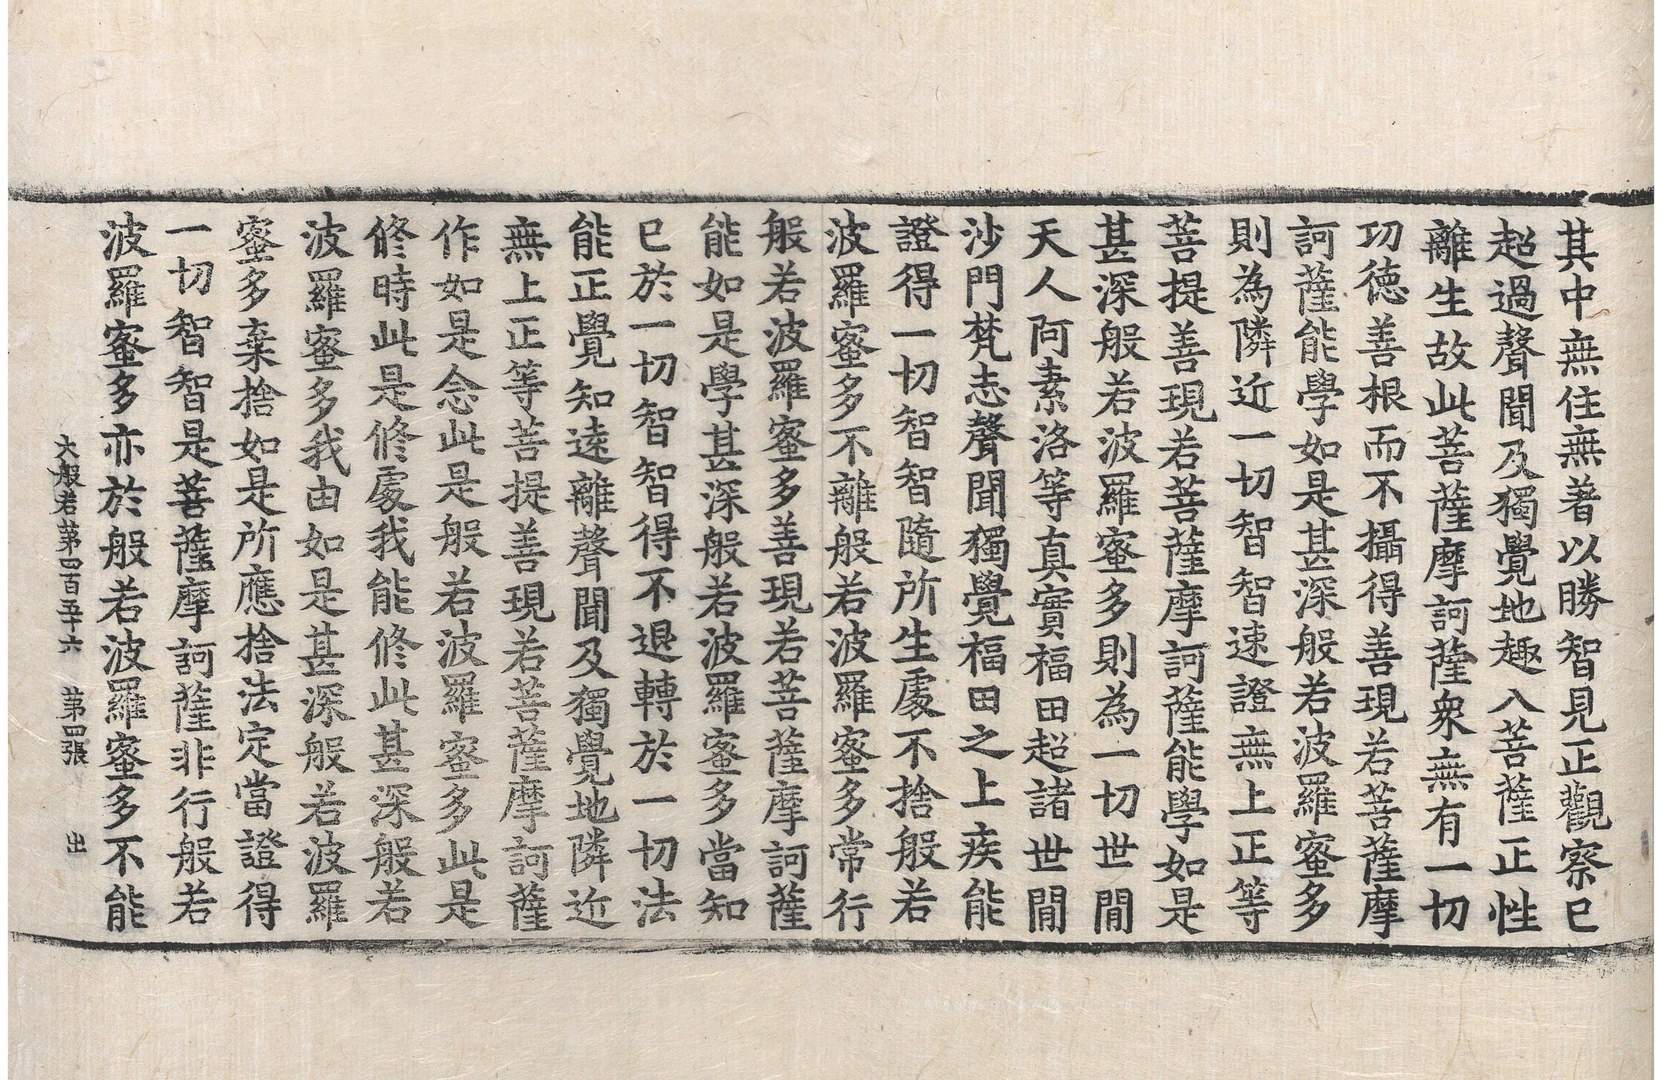 其中無住無著以勝智見正觀察已
超過聲聞及獨覺地趣入菩薩正性
離生故此菩薩摩訶薩衆無有一切
功德善根而不攝得善現若菩薩摩
訶薩能學如是甚深般若波羅蜜多
則為隣近一切智智速證無上正等
菩提善現若菩薩摩訶薩能學如是
甚深般若波羅蜜多則為一切世間
天人阿素洛等真實福田超諸世間
沙門梵志聲聞獨覺福田之上疾能
證得一切智智隨所生處不捨般若
波羅蜜多不離般若波羅蜜多常行
般若波羅蜜多善現若菩薩摩訶薩
能如是學甚深般若波羅蜜多當知
已於一切智智得不退轉於一切法
能正覺知遠離聲聞及獨覺地隣近
無上正等菩提善現若菩薩摩訶薩
作如是念此是般若波羅蜜多此是
修時此是修處我能修此甚深般若
波羅蜜多我由如是甚深般若波羅
蜜多棄捨如是所應捨法定當證得
一切智智是菩薩摩訶薩非行般若
波羅蜜多亦於般若波羅蜜多不能
大般若第四百五十六 第四張 出